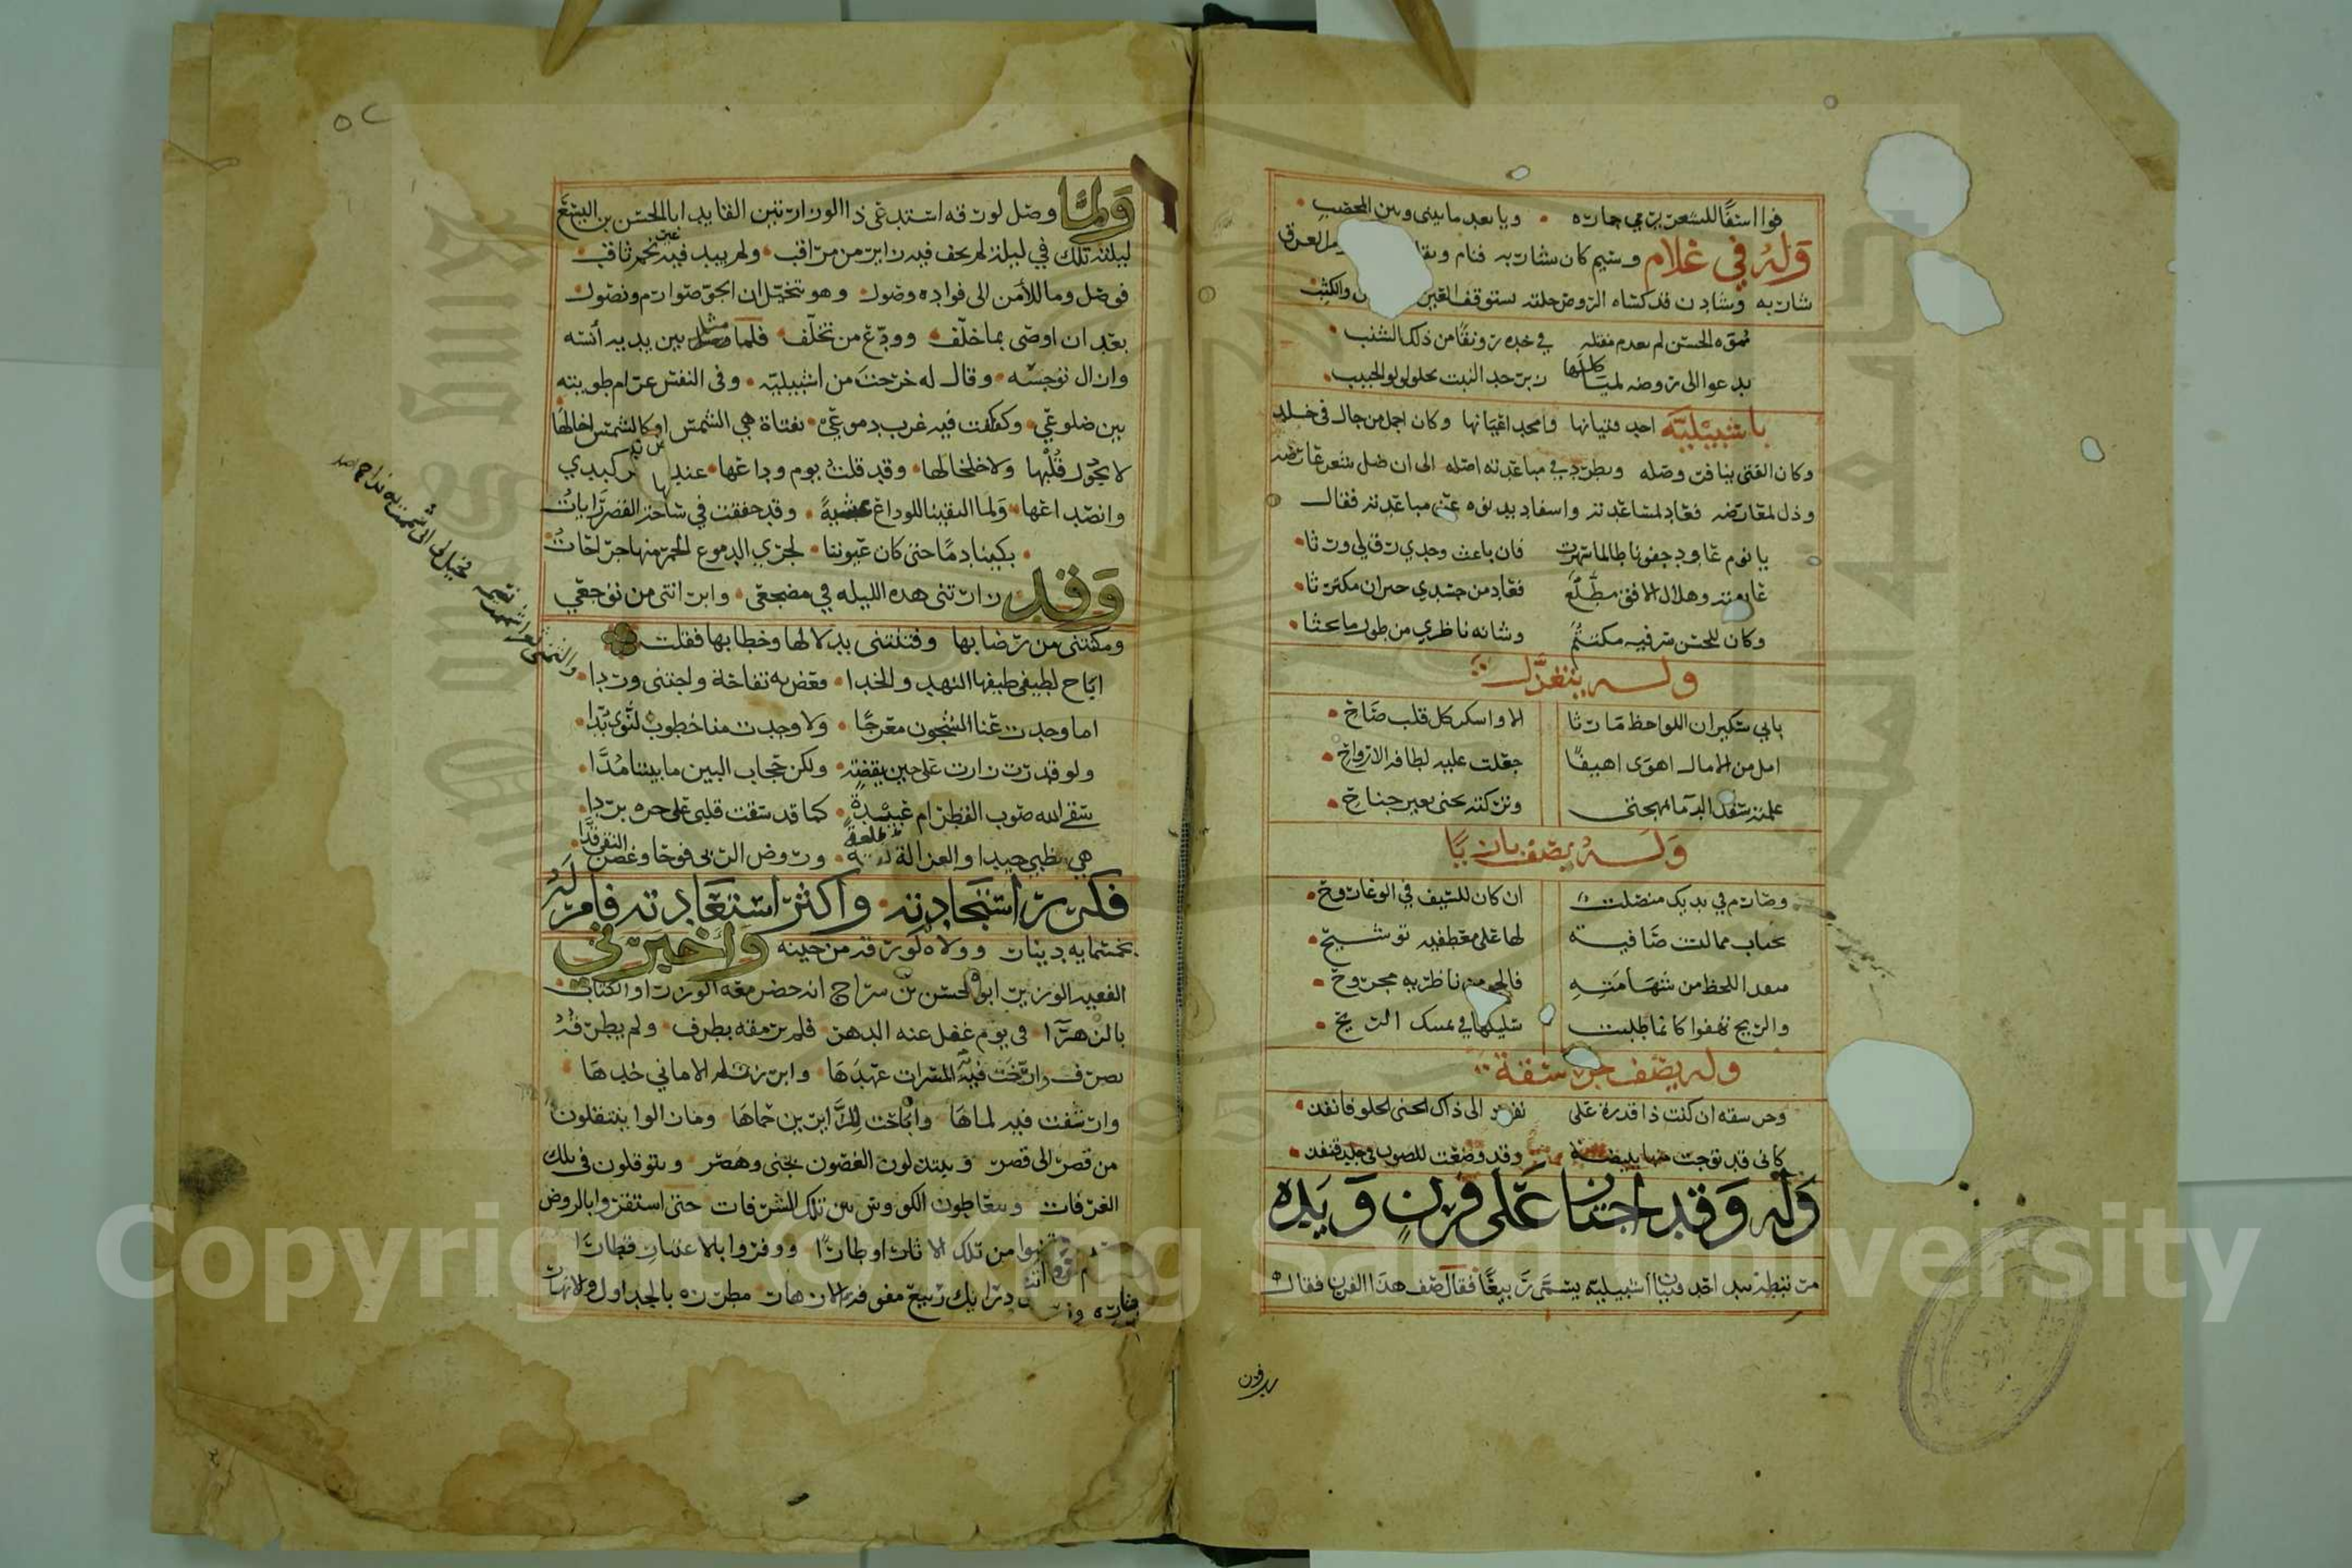 فوا اسفًا للشعر يرمي جماره • ويا بعد ما بيني وبين المحصب •
وله في غلام وسيم كان شاربه فنام
شاربه وشادن قد كساه الروض حلته يستوقف العين والكثب
مموه الحسن لم يعدم مقبله في خده رونقا من ذلك الشنب •
يدعو الى روضه لمياء كلها زبرجد النبت يحلو لولو الحبب •
باشبيلية احد فتيانها وامجد اغنيانها وكان اجمل من جال في خلد
وكان الفتى ينافر وصله ويطرد في مباعدته اصله الى ان ضل شعر عارضه
وذل لمعارضه فعاد لمساعدته واسفا بدنوه عن مباعدته فقال
يا نوم عاود جفونا طالما سهرت فان باعث وجدي رق لي ورثا •
عانقته وهلال الافق مطلع فعاد من حسدي حيران مكترثا •
وكان للحسن سر فيه مكتتم وشانه ناظري من طول ما بحثا •
وله يتغزل
بابي سكيران اللواحظ ما رثا الا واسكر كل قلب صاح •
امل من الامال اهوى اهيفًا جعلت عليه لطافه الارواح •
علمته سفك الدما بمهجتي وتركته يجني بغير جناح •
وله يصف بازيا
وصارم في يديك منصلت ان كان للسيف في الوغا روح •
يجتاب مما لبست ضافيته لها على معطفيه توشيح •
متقد اللحظ من شهامته فالجو من ناظريه مجروح •
والريح تهفوا كانما طلبت سليلها في يمسك الريح •
وله يصف جرشفة
وحرشفه ان كنت ذا قدرة على نفوذ الى ذاك الجنى الحلو فانفذ •
كاني قد توجت منها ببيضة وقد وضعت للصون في جلد قنفذ •
وله وقد اجتاز على فرن ويده
مرتبطه بيد احد فتيان اشبيلية يسمى ربيعًا فقال صف هذا الفرن فقال
يد فون
٥٢
ولما وصل لورقه استدعى ذا الوزارتين القايد ابا الحسن بن اليسع
ليلته تلك في ليلة لم يخف فيه زاير من مراقب • ولم يبد فيه غير نجم ثاقب •
فوصل وما للأمن الى فواده وصول • وهو يتخيل ان الجو صوارم ونصول •
بعد ان اوصى بما خلف • وودع من تخلف • فلما مثل بين يديه أنسه
وازال توجسه • وقال له خرجت من اشبيلية • وفى النفس غرام طويته
بين ضلوعي • وكفكفت فيه غرب دموعي • بفتاة هي الشمس او كالشمس اخالها
لا يجول قلبها ولا خلخالها • وقد قلت يوم وداعها • عند كبدي
وانصداعها • ولما التقينا للوداع عشية • وقد خفقت في ساحة القصر رايات
• بكينا دمًا حتى كان عيوننا • لجري الدموع الحمر منها جراحات
وقد زارتني هذه الليله في مضجعي • وابراتني من توجعي
ومكنتني من رضابها وفتنتني بدلالها وخطابها فقلت
اباح لطيفي طيفها النهد والخدا • فعض به تفاحة واجتنى وردا •
اما وجدت عنا الشجون معرجا • ولا وجدت منا خطوب النوى بدا •
ولو قدرت زارت على حين يقظة • ولكن حجاب البين ما بيننا مدا •
سقى الله صوب القطر ام عبيدة • كما قد سقت قلبي على حره بردا •
هي الظبي جيدا والغزالة طلعة • وروض الربى فوحا وغصن النقى قدا •
فكرر استجادته • واكثر استعادته فامر له
بخمسمايه دينار وولاه لورقه من حينه واخبرني
الفقيه الوزير ابو الحسن بن سراج انه حضر معه الوزراء والكتاب •
بالزهرا في يوم غفل عنه الدهر • فلم يرمقه بطرف • ولم يطرقه
بصرف • وارخت فيه المسرات عهدها • وابرزت له الاماني خدها
وارشفت فيه لماها واباحت للزايرين حماها وما زالوا ينتقلون
من قصر الى قصر ويبتذلون الغصون بجنى وهصر ويتوقلون في تلك
الغرفات ويتعاطون الكووس بين تلك الشرفات حتى استقروا بالروض
من تلك الاثار اوطارا ووقروا بالاعتبار قطارا
درانيك ربيع مفوفة بالازهار مطرزه بالجداول والانهار
Copyright © King Saud University